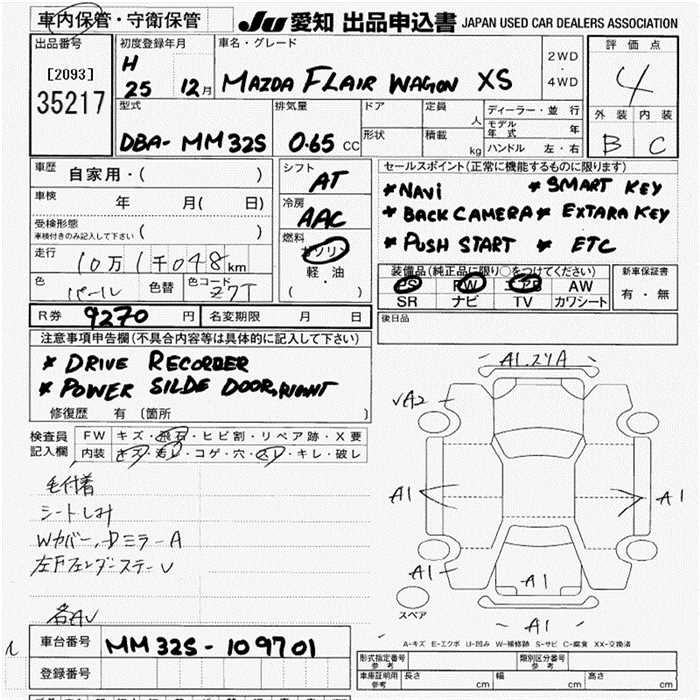 車内保管・守衛保管
JU 愛知 出品申込書 JAPAN USED CAR DEALERS ASSOCIATION
出品番号
[2093]
35217
初度登録年月
H
25 12月
車名・グレード
MAZDA FLAIR WAGON XS
2WD
・
4WD
評価点
4
外装 内装
B C
型式
DBA- MM32S
排気量
0.65 CC
ドア
形状
定員
人
積載
kg
ディーラー・並行
モデル年式 年
ハンドル 左・右
車歴
自家用・( )
車検 年 月( 日)
受検形態
車検付きのみ記入して下さい ( )
走行
10万1千048km
色 パール 色替 色コード Z7T
シフト
AT
冷房
AAC
燃料
ガソリン
軽・油
( )
セールスポイント(正常に機能するものに限ります)
*NAVI *SMART KEY
*BACK CAMERA * EXTARA KEY
*PUSH START * ETC
装備品(純正品に限り○をつけてください)
PS PW エアB AW
SR ナビ TV カワシート
新車保証書
有・無
R券 9270 円 名変期限 月 日
後日品
注意事項申告欄(不具合内容等は具体的に記入して下さい)
* DRIVE RECORDER
* POWER SILDE DOOR, RIGHT
修復歴 有 〔箇所 〕
検査員
記入欄
FW キズ・飛石・ヒビ割・リペア跡・X要
内装 キズ・汚レ・コゲ・穴・スレ・キレ・破レ
毛付着
シートしみ
Wカバー、Dミラー A
左Fフェンダーステー U
各AU
A1.2 A
A2
A1
A1
A1
A1
A1
スペア
A-キズ E-エクボ U-凹み W-補修跡 S-サビ C-腐食 XX-交換済
車台番号 MM32S-109701
登録番号
形式指定番号
参考
類別区分番号
参考
車庫証明用
参考
長さ cm 幅 cm 高さ cm